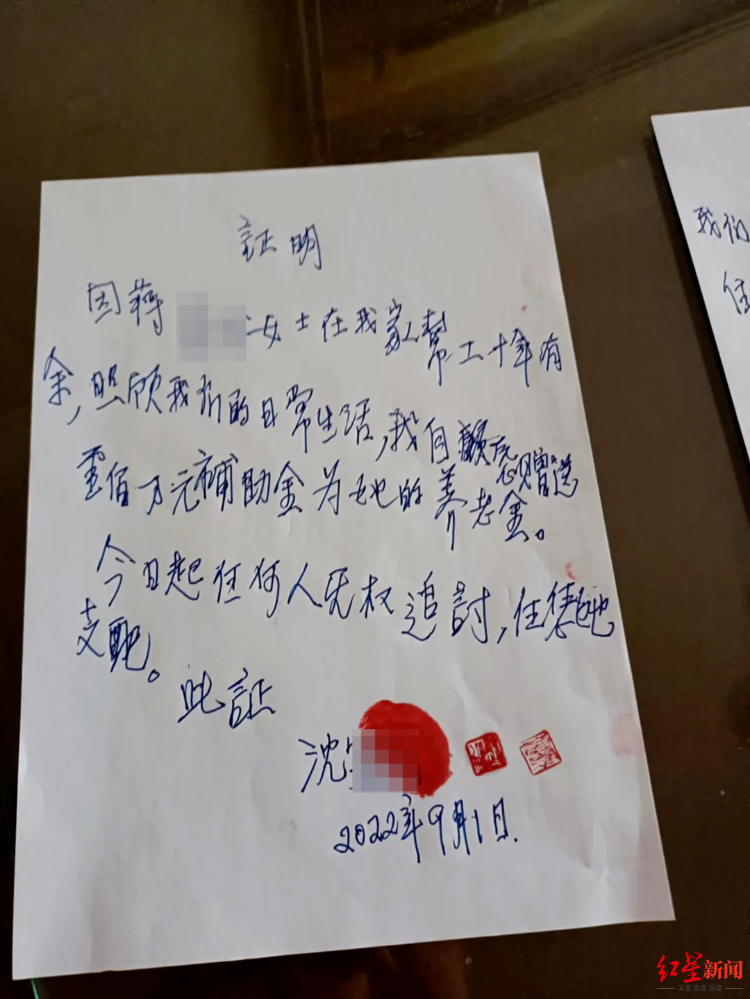 証明
因蒋 女士在我家帮工十年有
余,照顾我们的日常生活,我自願意赠送
壹佰万元補助金为她的养老金。
今日起任何人无权追討,任凭她
支配。
此証
沈
2022年9月1日.
我们
任
红星新闻
深度 态度 温度